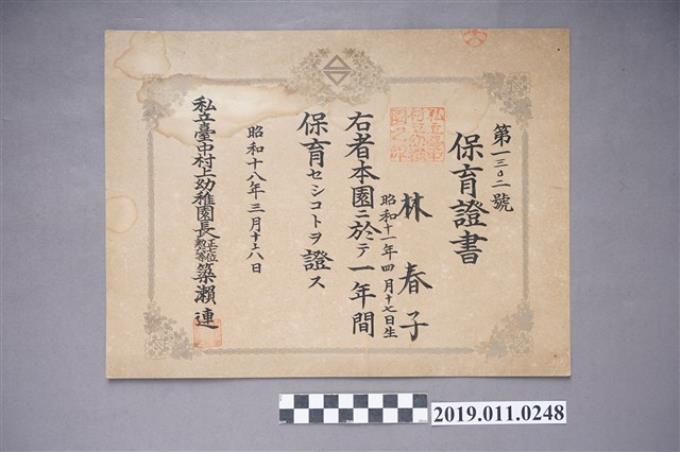 第一三〇二號
保育證書
林春子
昭和十一年四月十七日生
右者本園ニ於テ一年間
保育セシコトヲ證ス
昭和十八年三月十八日
私立臺中村上幼稚園長正七位勲六等築瀨連
2019.011.0248